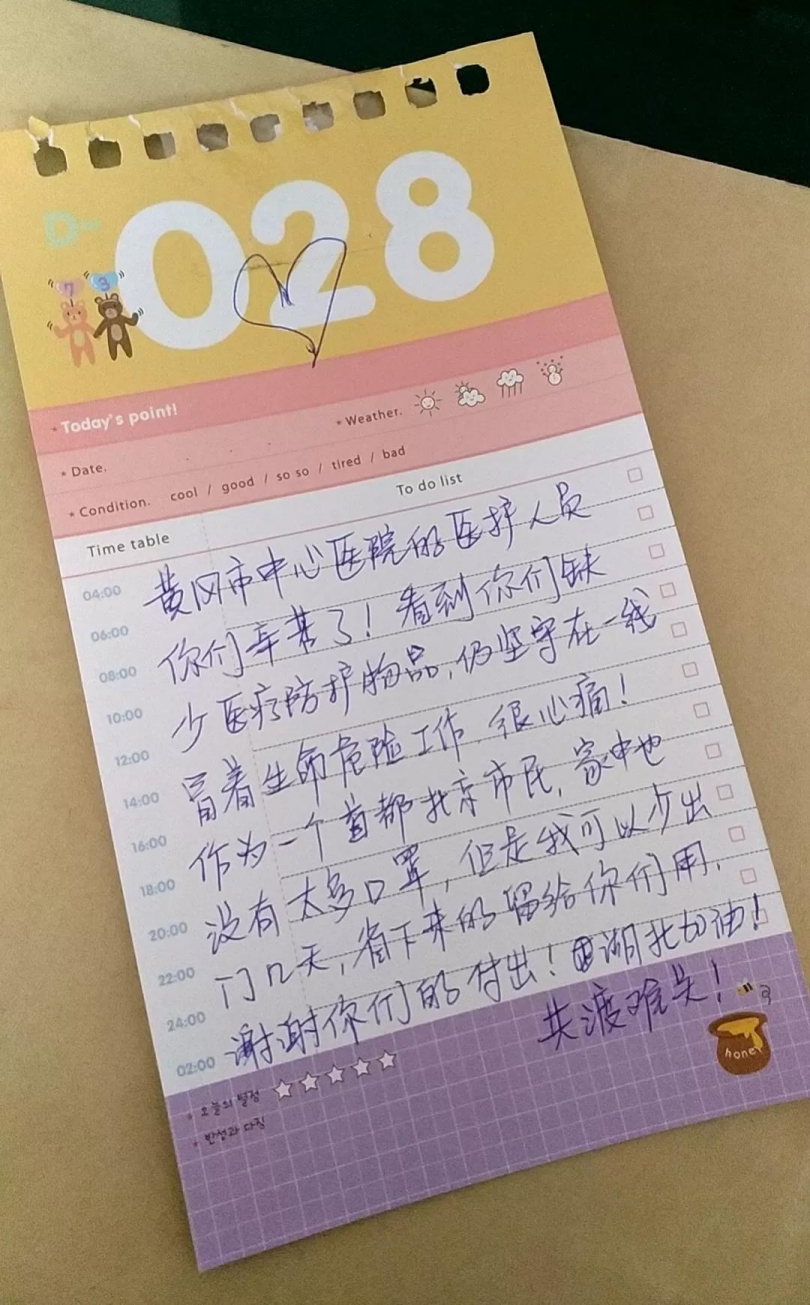 D-
028
7 3
* Today's point!
* Weather.
* Date.
* Condition. cool / good / so so / tired / bad
Time table To do list
04:00
06:00
08:00
10:00
12:00
14:00
16:00
18:00
20:00
22:00
24:00
02:00
黄冈市中心医院的医护人员
你们辛苦了！看到你们缺
少医疗防护物品,仍坚守在一线
冒着生命危险工作 很心痛！
作为一个首都北京市民,家中也
没有太多口罩,但是我可以少出
门几天,省下来的留给你们用.
谢谢你们的付出！湖北加油！
共渡难关！
honey
* 오늘의 별점
* 반성과 다짐